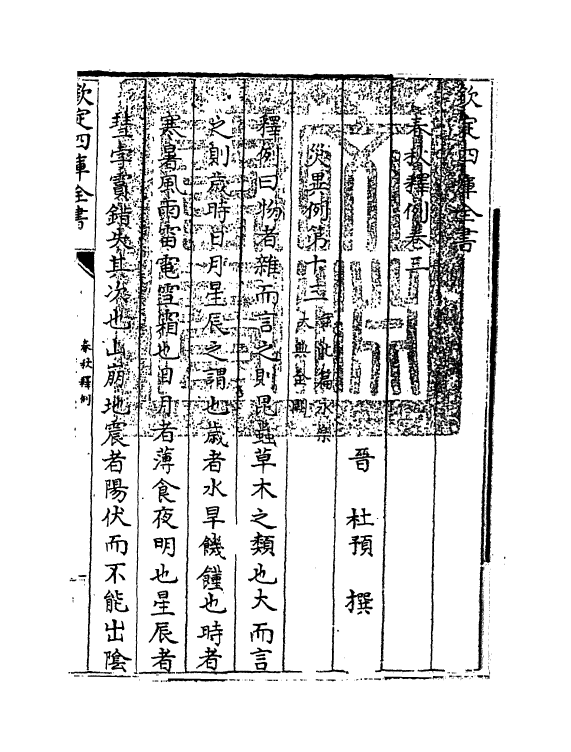 欽定四庫全書
春秋釋例卷三
晉 杜預 撰
災異例第十三 此篇永樂大典全闕
釋例曰物者雜而言之則昆蟲草木之類也大而言
之則歲時日月星辰之謂也歲者水旱饑饉也時者
寒暑風雨雷電雪霜也日月者薄食夜明也星辰者
彗孛霣錯失其次也山崩地震者陽伏而不能出陰
欽定四庫全書
春秋釋例